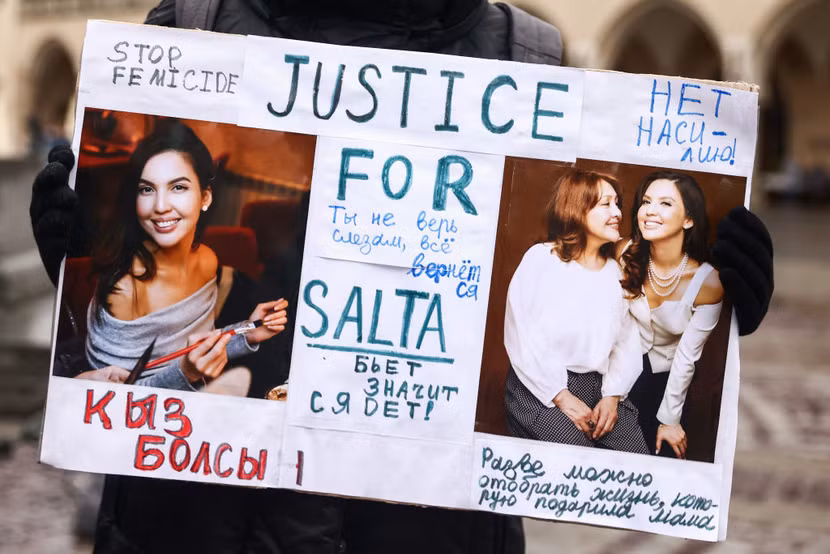 STOP
FEMICIDE
JUSTICE
НЕТ
НАСИ-
ЛИЮ!
FOR
Ты не верь
слезам, всё
вернёт
ся
SALTA
БЬЕТ
ЗНАЧИТ
СЯDET!
ҚЫЗ
БОЛСЫ
Разве можно
отобрать жизнь, кото-
рую подарила мама